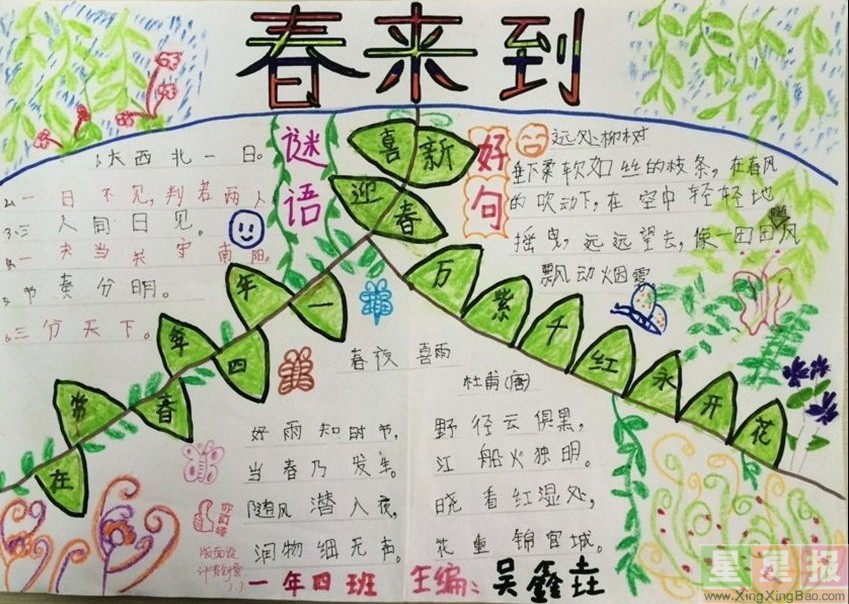 春来到
谜语
1.大西北一日。
2.一日不见,判若两人
3.三人同日见。
4.一夫当关守南阳。
5.节奏分明。
6.三分天下。
喜新
迎春
一年
四年
春常在
万紫千红永开花
好句
远处柳树
垂下柔软如丝的枝条,在春风
的吹动下,在空中轻轻地
摇曳,远远望去,像一团团风
飘动烟雾
春夜喜雨
杜甫(唐)
好雨知时节,
当春乃发生。
随风潜入夜,
润物细无声。
野径云俱黑,
江船火独明。
晓看红湿处,
花重锦官城。
你真棒
版面设
计有创意
一年四班 主编:吴鑫垚
星星报
www.XingXingBao.com